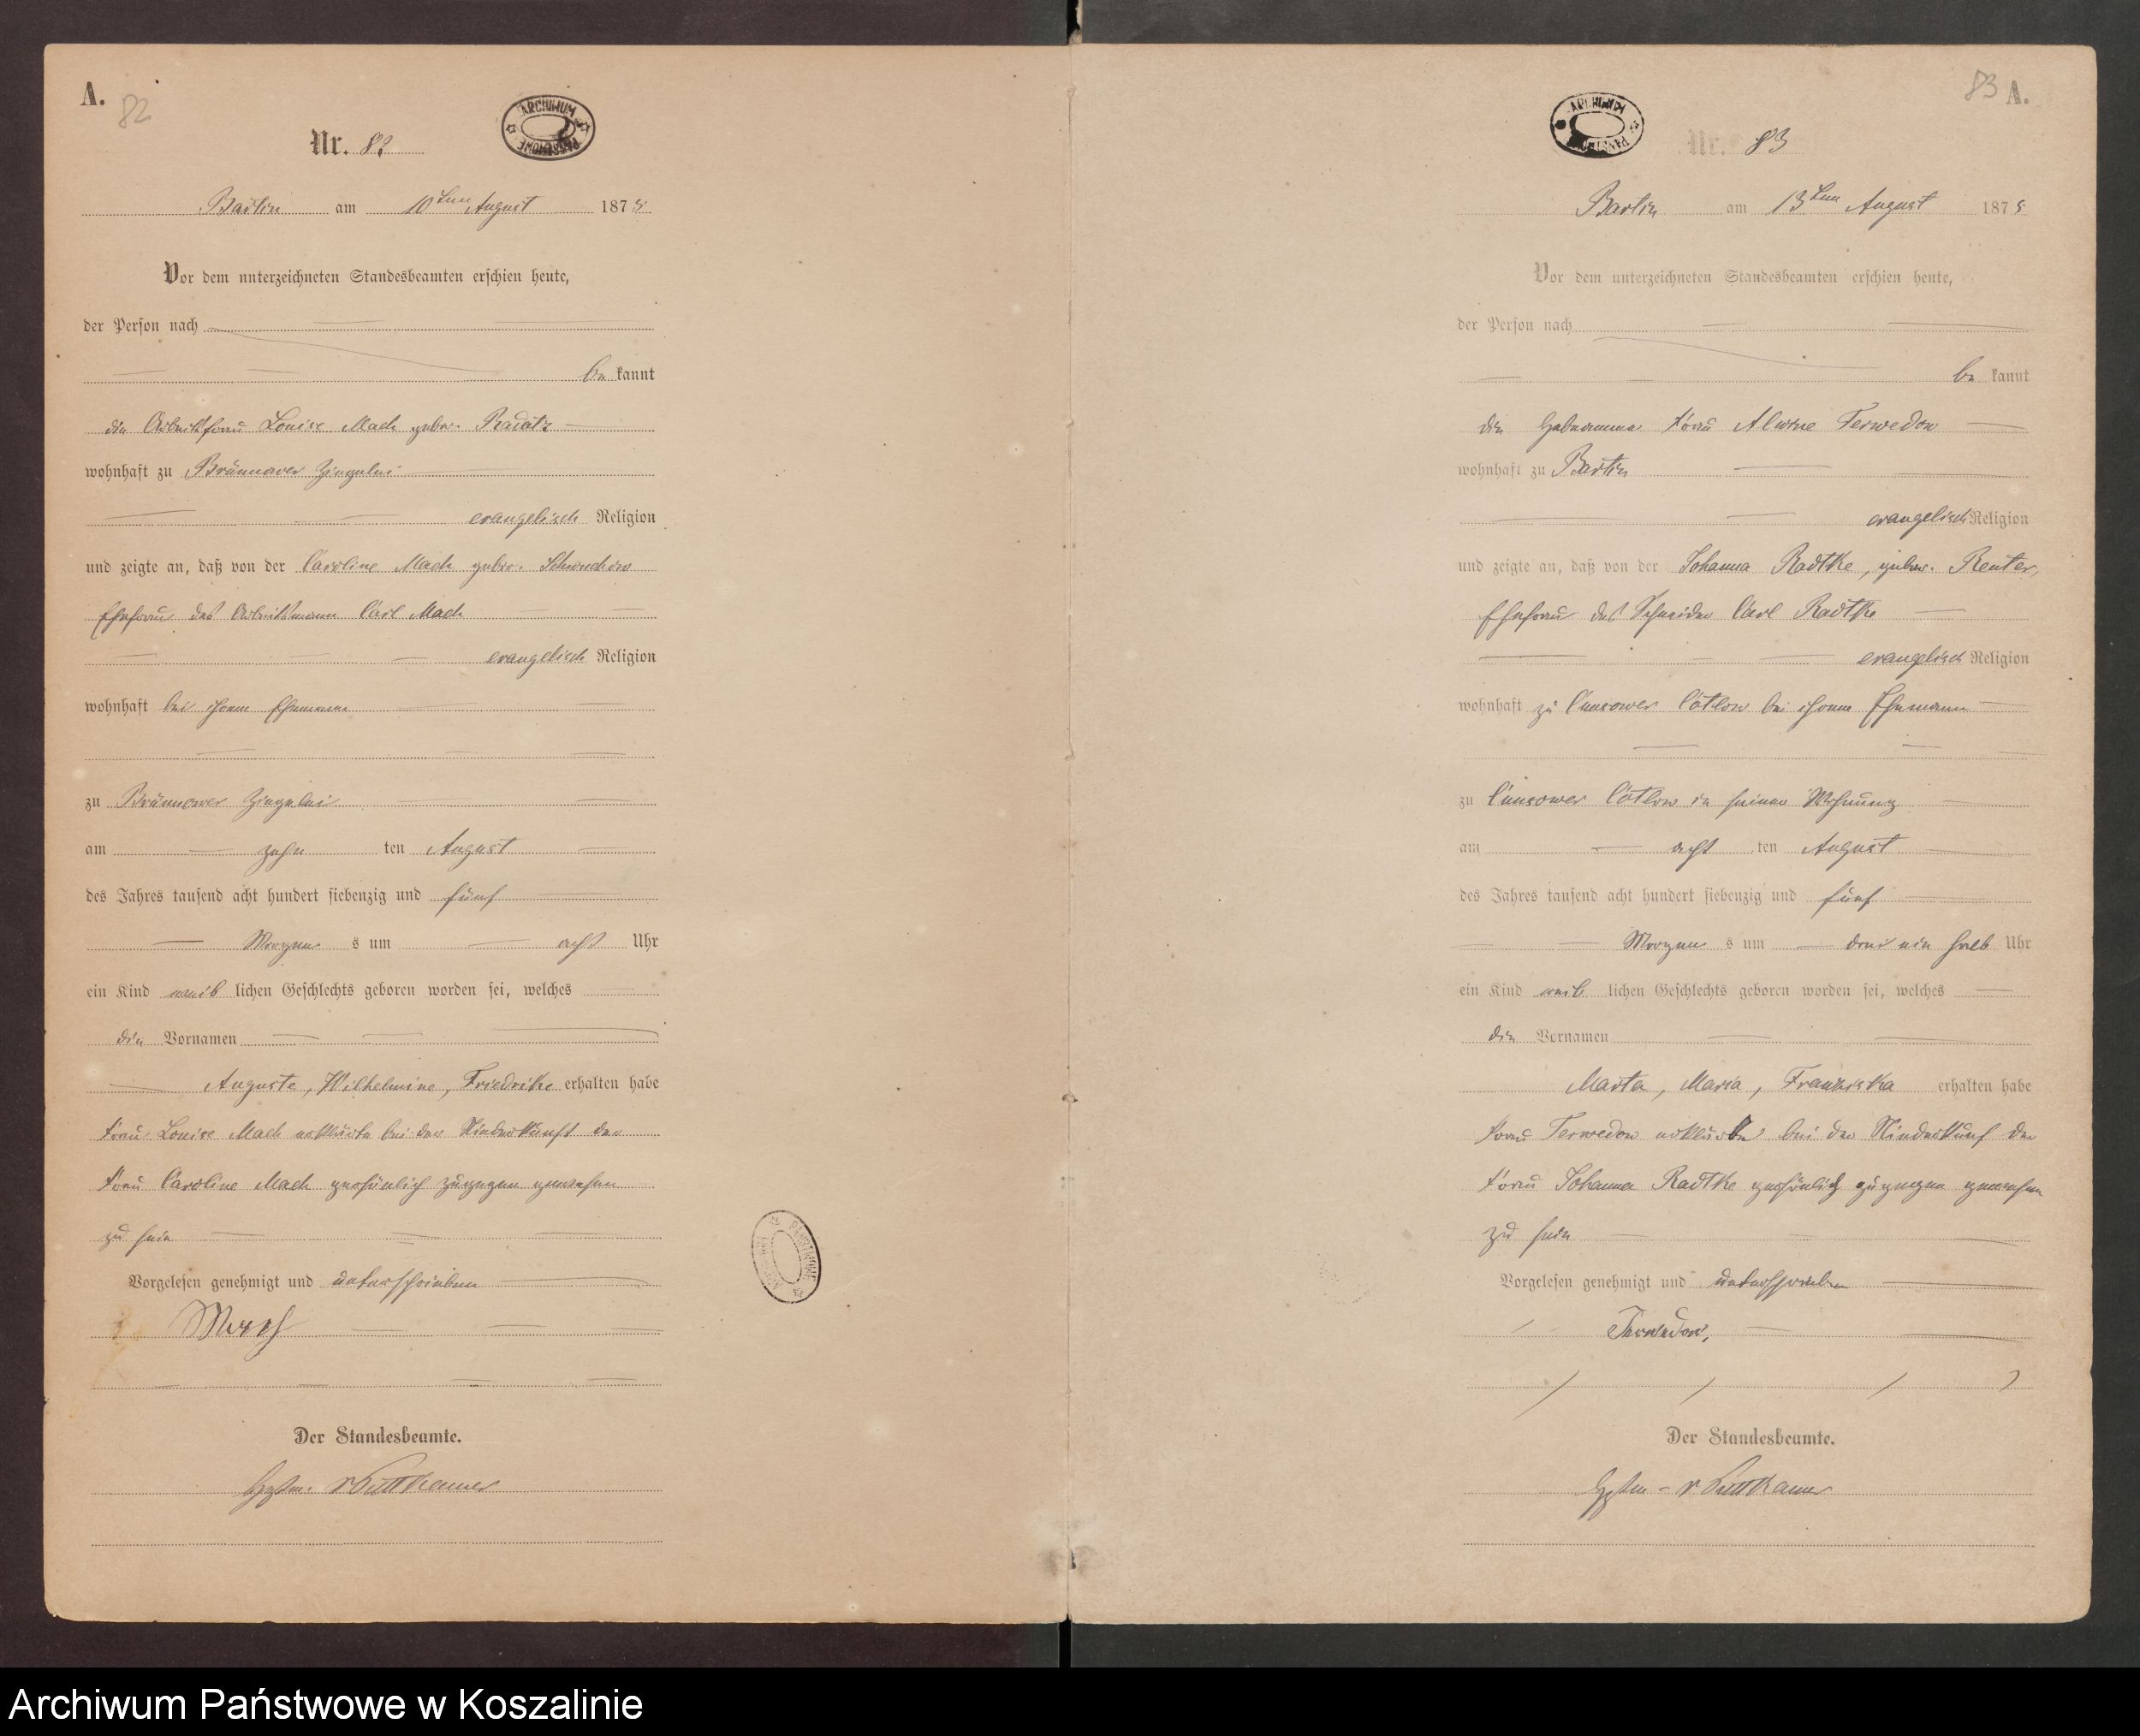 A.
82
ARCHIWUM PAŃSTWOWE
Nr. 82
Bartin am 10ten August 1875
Vor dem unterzeichneten Standesbeamten erschien heute,
der Person nach
be kannt
die Arbeitsfrau Louise Mach gebor. Radatz
wohnhaft zu Brünnower Ziegelei
evangelisch Religion
und zeigte an, daß von der Caroline Mach gebor.
Ehefrau des Arbeitsmann Carl Mach
evangelisch Religion
wohnhaft bei ihrem Ehemann
zu Brünnower Ziegelei
am zehn ten August
des Jahres tausend acht hundert siebenzig und fünf
Morgen s um acht Uhr
ein Kind weib lichen Geschlechts geboren worden sei, welches
die Vornamen
Auguste, Wilhelmine, Friedrike erhalten habe
Frau Louise Mach erklärte bei der Niederkunft der
Frau Caroline Mach persönlich zugegen gewesen
zu sein
Vorgelesen genehmigt und unterschrieben
Mach
Der Standesbeamte.
Hptm. v Puttkamer
83 A.
ARCHIWUM PAŃSTWOWE
Nr. 83
Bartin am 13ten August 1875
Vor dem unterzeichneten Standesbeamten erschien heute,
der Person nach
be kannt
die Hebamme Frau Alwine Terwedow
wohnhaft zu Bartin
evangelisch Religion
und zeigte an, daß von der Johanna Radtke, gebor. Reuter,
Ehefrau des Schneider Carl Radtke
evangelisch Religion
wohnhaft zu Cunsower Cotlow bei ihrem Ehemann
zu Cunsower Cotlow in seiner Wohnung
am acht ten August
des Jahres tausend acht hundert siebenzig und fünf
Morgen s um drei ein halb Uhr
ein Kind weib lichen Geschlechts geboren worden sei, welches
die Vornamen
Marta, Maria, Franziska erhalten habe
Frau Terwedow erklärte bei der Niederkunf der
Frau Johanna Radtke persönlich zugegen gewesen
zu sein
Vorgelesen genehmigt und unterschrieben
Terwedow,
Der Standesbeamte.
Hptm - v Puttkamer
Archiwum Państwowe w Koszalinie